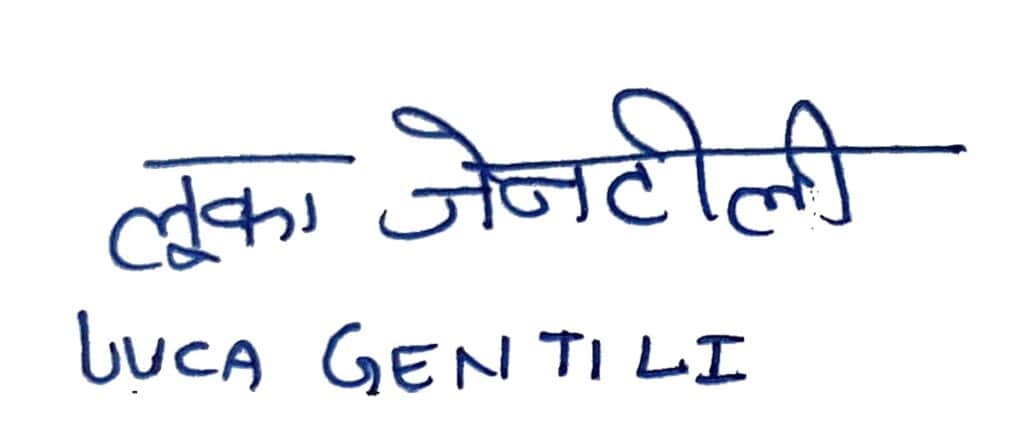 लूका जेनटीली
LUCA GENTILI